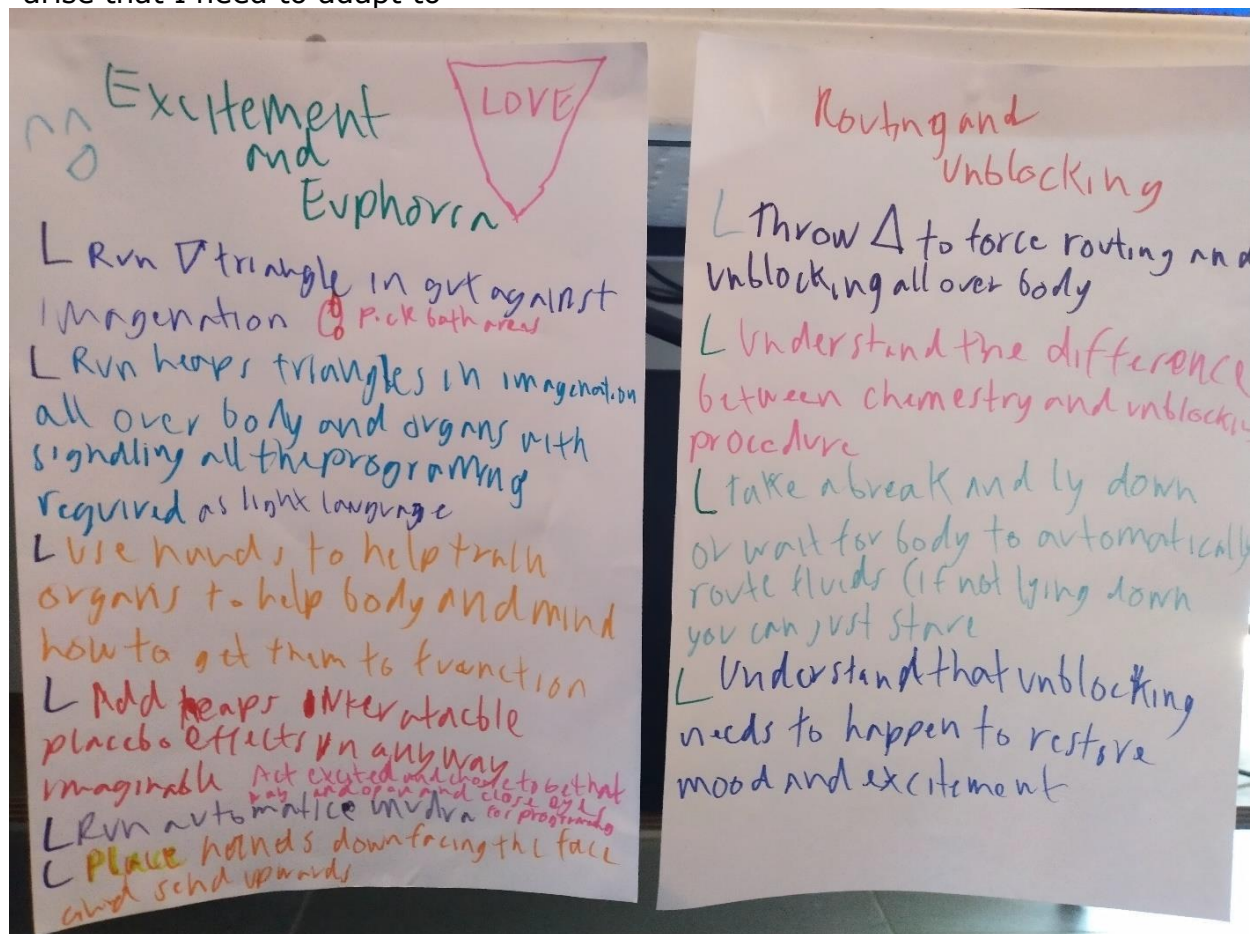 arise that I need to adapt to
Excitement
and
Euphoria
LOVE
L Run ∇ triangle in gut against
imagenation Pick both areas
L Run heaps triangles in imagenation
all over body and organs with
signalling all the programing
required as light language
L Use hands to help train
organs to help body and mind
how to get them to function
L Add heaps
placebo effects in anyway
imaginable Act excited and chose to be that
way and open and close eye
L Run automatice mudra for programing
L Place hands down facing the face
and send upwards
Routing and
Unblocking
L Throw Δ to force routing and
unblocking all over body
L Understand the difference
between chemestry and
procedure
L take a break and ly down
or wait for body to automatically
route fluids (if not lying down
you can just stare
L Understand that unblocking
needs to happen to restore
mood and excitement